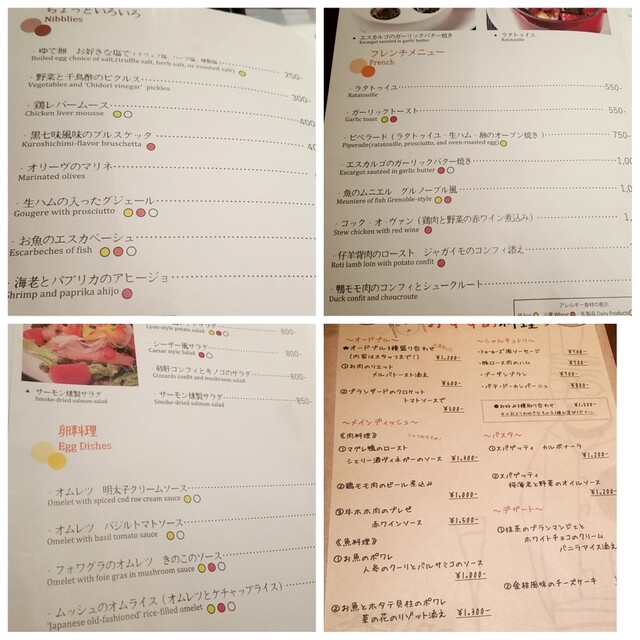 ちょっといろいろ
Nibblies
・ゆで卵 お好きな塩で(トリュフ塩、ハーブ塩、燻製塩)
Boiled egg choice of salt,(truffle salt, herb salt, or roasted salt)
250-
・野菜と千鳥酢のピクルス
Vegetables and 'Chidori vinegar' pickles
300-
・鶏レバームース
Chicken liver mousse
400
・黒七味風味のブルスケッタ
Kuroshichimi-flavor bruschetta
・オリーヴのマリネ
Marinated olives
・生ハムの入ったグジェール
Gougere with prosciutto
・お魚のエスカベーシュ
Escarbeches of fish
・海老とパプリカのアヒージョ
Shrimp and paprika ahijo
▲ エスカルゴのガーリックバター焼き
Escargot sauteed in garlic butter
▲ ラタトゥイユ
Ratatouille
フレンチメニュー
French
・ラタトゥイユ
Ratatouille
550-
・ガーリックトースト
Garlic toast
550-
・ピペラード(ラタトゥイユ・生ハム・卵のオーブン焼き)
Piperade(ratatouille, prosciutto, and oven-roasted egg)
750-
・エスカルゴのガーリックバター焼き
Escargot sautéed in garlic butter
・魚のムニエル グルノーブル風
Meuniere of fish Grenoble-style
・コック・オ・ヴァン(鶏肉と野菜の赤ワイン煮込み)
Stew chicken with red wine
・仔羊背肉のロースト ジャガイモのコンフィ添え
Roti lamb loin with potato confit
・鴨モモ肉のコンフィとシュークルート
Duck confit and choucroute
アレルギー食材の表示
卵 Egg 小麦 Wheat 乳製品 Dairy Products
Lyon-style potato salad
800-
・シーザー風サラダ
Caesar style Salad
800-
・砂肝コンフィとキノコのサラダ
Gizzards confit and mushroom salad
800-
・サーモン燻製サラダ
Smoke-dried salmon salad
850-
▲ サーモン燻製サラダ
Smoke-dried salmon salad
卵料理
Egg Dishes
・オムレツ 明太子クリームソース
Omelet with spiced cod roe cream sauce
・オムレツ バジルトマトソース
Omelet with basil tomato sauce
・フォワグラのオムレツ きのこのソース
Omelet with foie gras in mushroom sauce
・ムッシュのオムライス(オムレツとケチャップライス)
'Japanese old-fashioned' rice-filled omelet
おすすめ料理
～オードブル～
★オードブル3種盛り合わせ
(内容はスタッフまで!)
¥1,200-
①お肉のリエット
メルバトースト添え
¥600-
②ブランダードのクロケット
トマトソースで
¥600-
～シャルキュトリ～
・トゥールーズ風ソーセージ
¥900-
・豚ロース肉のハム
¥700-
・ブーダンブラン
¥900-
・パテ・ド・カンパーニュ
¥800-
●お好み3種取り合わせ
¥1,500-
～メインディッシュ～
《肉料理》
①マグレ鴨のロースト
シェリー酒ヴィネガーのソース
¥1,300-
②鶏モモ肉のビール煮込み
¥1,000-
③牛ホホ肉のブレゼ
赤ワインソース
¥1,500-
《魚料理》
①お魚のポワレ
人参のクーリとバルサミコのソース
¥1,000-
②お魚とホタテ貝柱のポワレ
菜の花のリゾット添え
¥1,300-
～パスタ～
①スパゲッティ カルボナーラ
¥1,200-
②スパゲッティ
桜海老と野菜のオイルソース
¥1,200-
～デザート～
①抹茶のブランマンジェと
ホワイトチョコのクリーム
バニラアイス添え
②金柑風味のチーズケーキ